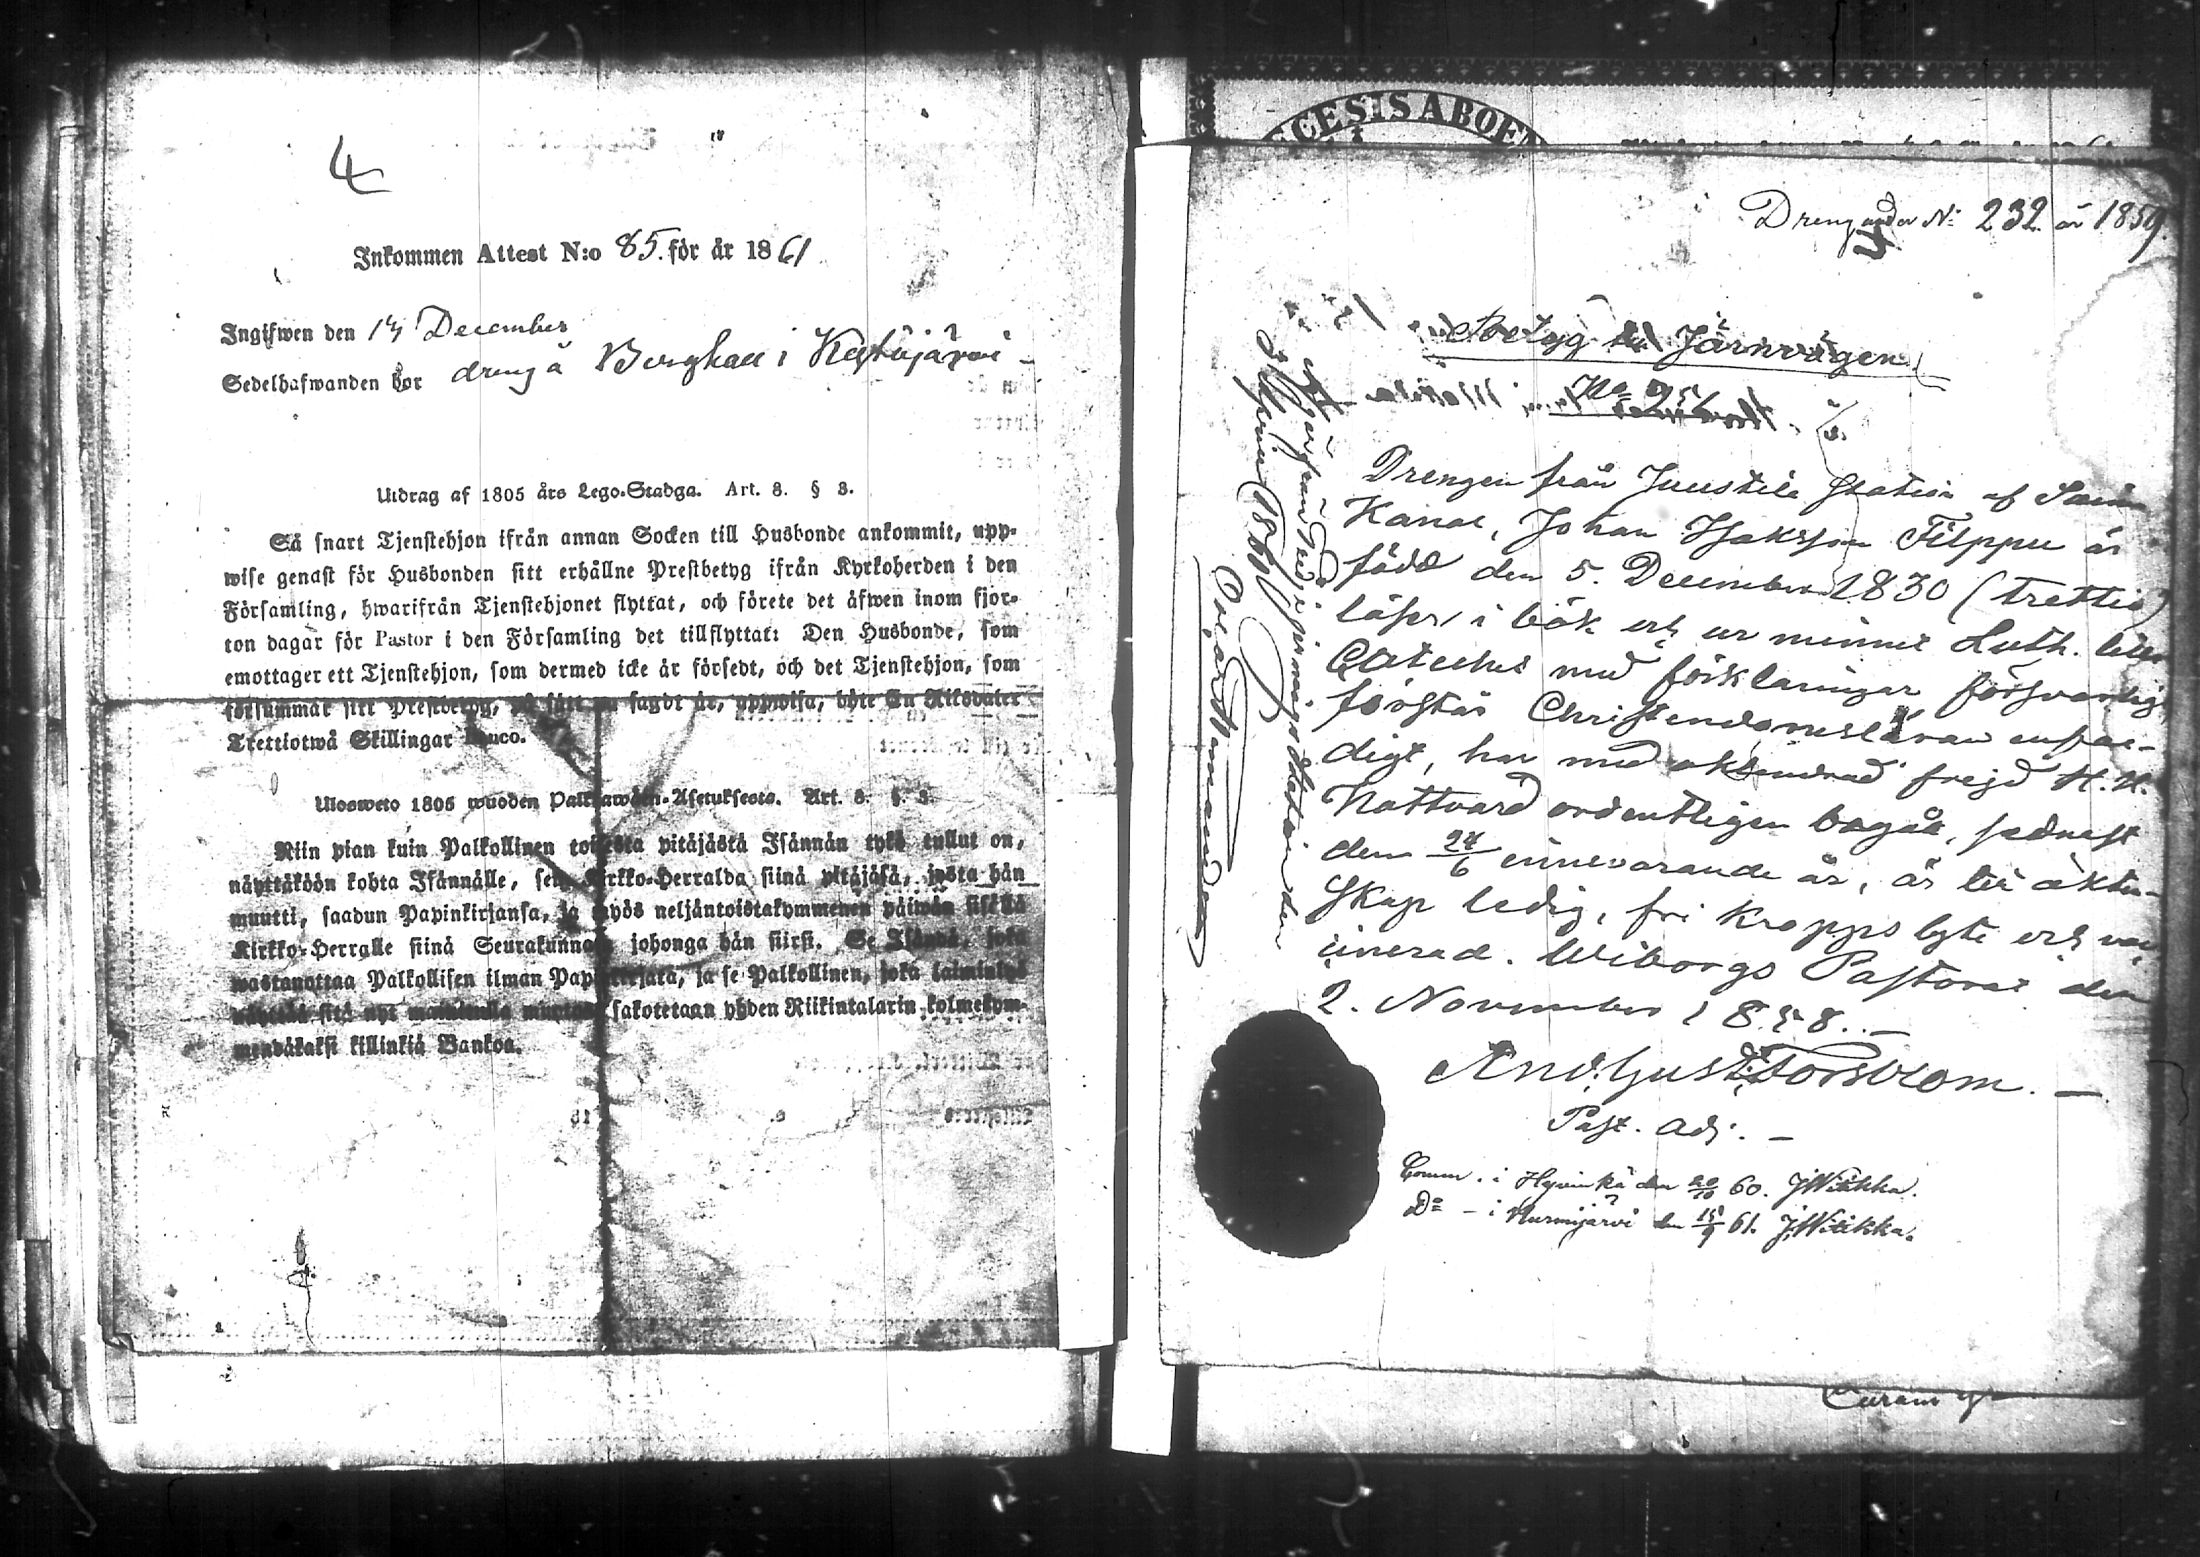 4
Inkommen Attest N:o 85. för år 1861
Ingifwen den 14 December
Sedelhafwanden bor dreng å Berghall i Kytäjärvi
Utdrag af 1805 års Lego-Stadga. Art. 3. § 3.
Så snart Tjenstehjon ifrån annan Socken till Husbonde ankommit, upp-
wise genast för Husbonden sitt erhållne Prestbetyg ifrån Kyrkoherden i den
Församling, hwarifrån Tjenstehjonet flyttat, och förete det äfwen inom fjor-
ton dagar för Pastor i den Församling det tillflyttat: Den Husbonde, som
emottager ett Tjenstehjon, som dermed icke är försedt, och det Tjenstehjon, som
försummar sitt Prestbetyg, på sätt nu sagdt är, uppwisa, böte En Riksdaler
Trettiotwå Skillingar Banco.
Ulosweto 1805 wuoden Palkkawäen-Asetuksesta. Art. 3. §. 3.
Niin pian kuin Palkollinen toisesta pitäjästä Isännän tykö tullut on,
näyttäköön kohta Isännälle, sen Kirkko-Herralda siinä pitäjäsä, josta hän
muutti, saadun Papinkirjansa, ja myös neljäntoistakymmenen päiwän sisällä
Kirkko-Herralle siinä Seurakunnasa johonga hän siirsi. Se Isändä, joka
wastanottaa Palkollisen ilman Papinkirjata, ja se Palkollinen, joka laiminlyö
näyttää sitä nyt mainitulla muotoa, sakotetaan yhden Riikintalarin kolmekym-
mendäkaksi killinkiä Bankoa.
CESIS ABOEN
Dreng under No 232 år 1859.
Betyg till Järnvägen
No 95
Drengen från Juustila Station af Saima
Kanal, Johan Isaksson Filppu är
född den 5. December 1830 (trettio)
läser i bok och ur minnet Luth. lilla
Cateches med förklaringar försvarligt
förstår Christendomsläran enfal-
digt, har med oklandrad frejd H. H.
Nattvard ordentligen begått, sednast
den 24/6 innevarande år, är till äkten-
skap ledig, fri kropps lyte och vac-
cinerad. Wiborgs Pastorat den
2. November 1858. —
And. Gust. Forsblom. —
Past. adj. —
Comm. i Hyvinkä den 20/10 60. J Witikka.
Do — i Nurmijärvi den 15/9 61. J Witikka.
1860